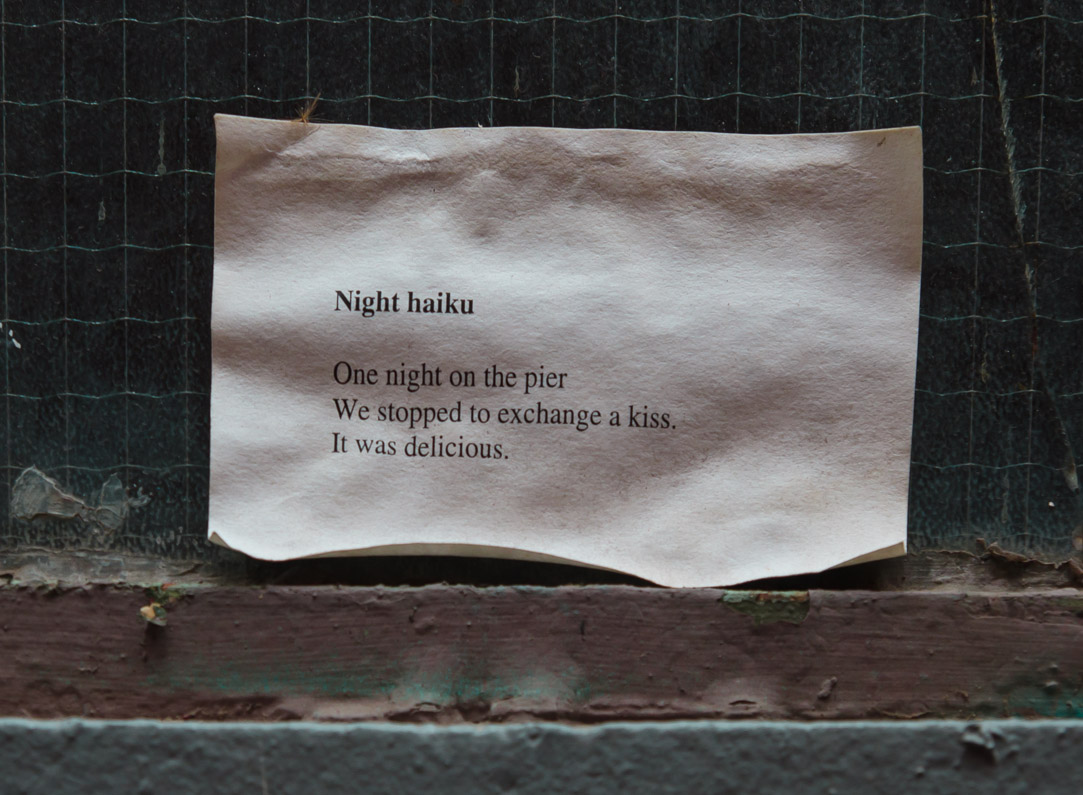 Night haiku
One night on the pier
We stopped to exchange a kiss.
It was delicious.